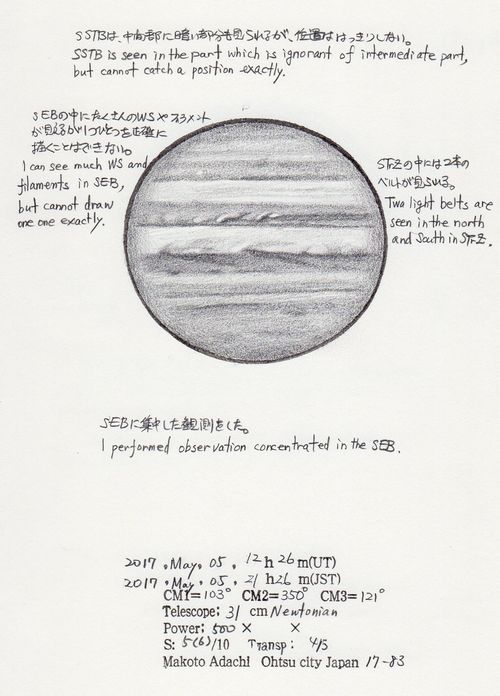 SSTBは、中高部に暗い部分も見られるが、位置ははっきりしない。
SSTB is seen in the part which is ignorant of intermediate part,
but cannot catch a position exactly.
SEBの中にたくさんのWSやフィラメント
が見えるが1つひとつを正確に
描くことはできない。
I can see much WS and
filaments in SEB,
but cannot draw
one one exactly.
STrZの中には2本の
ベルトが見られる。
Two light belts are
seen in the north
and South in STrZ.
SEBに集中した観測をした。
I performed observation concentrated in the SEB.
2017 . May . 05 . 12 h 26 m(UT)
2017 . May . 05 . 21 h 26 m(JST)
CM1=103° CM2=350° CM3=121°
Telescope; 31 cm Newtonian
Power; 500 × ×
S: 5(6)/10 Transp: 4/5
Makoto Adachi Ohtsu city Japan 17-83